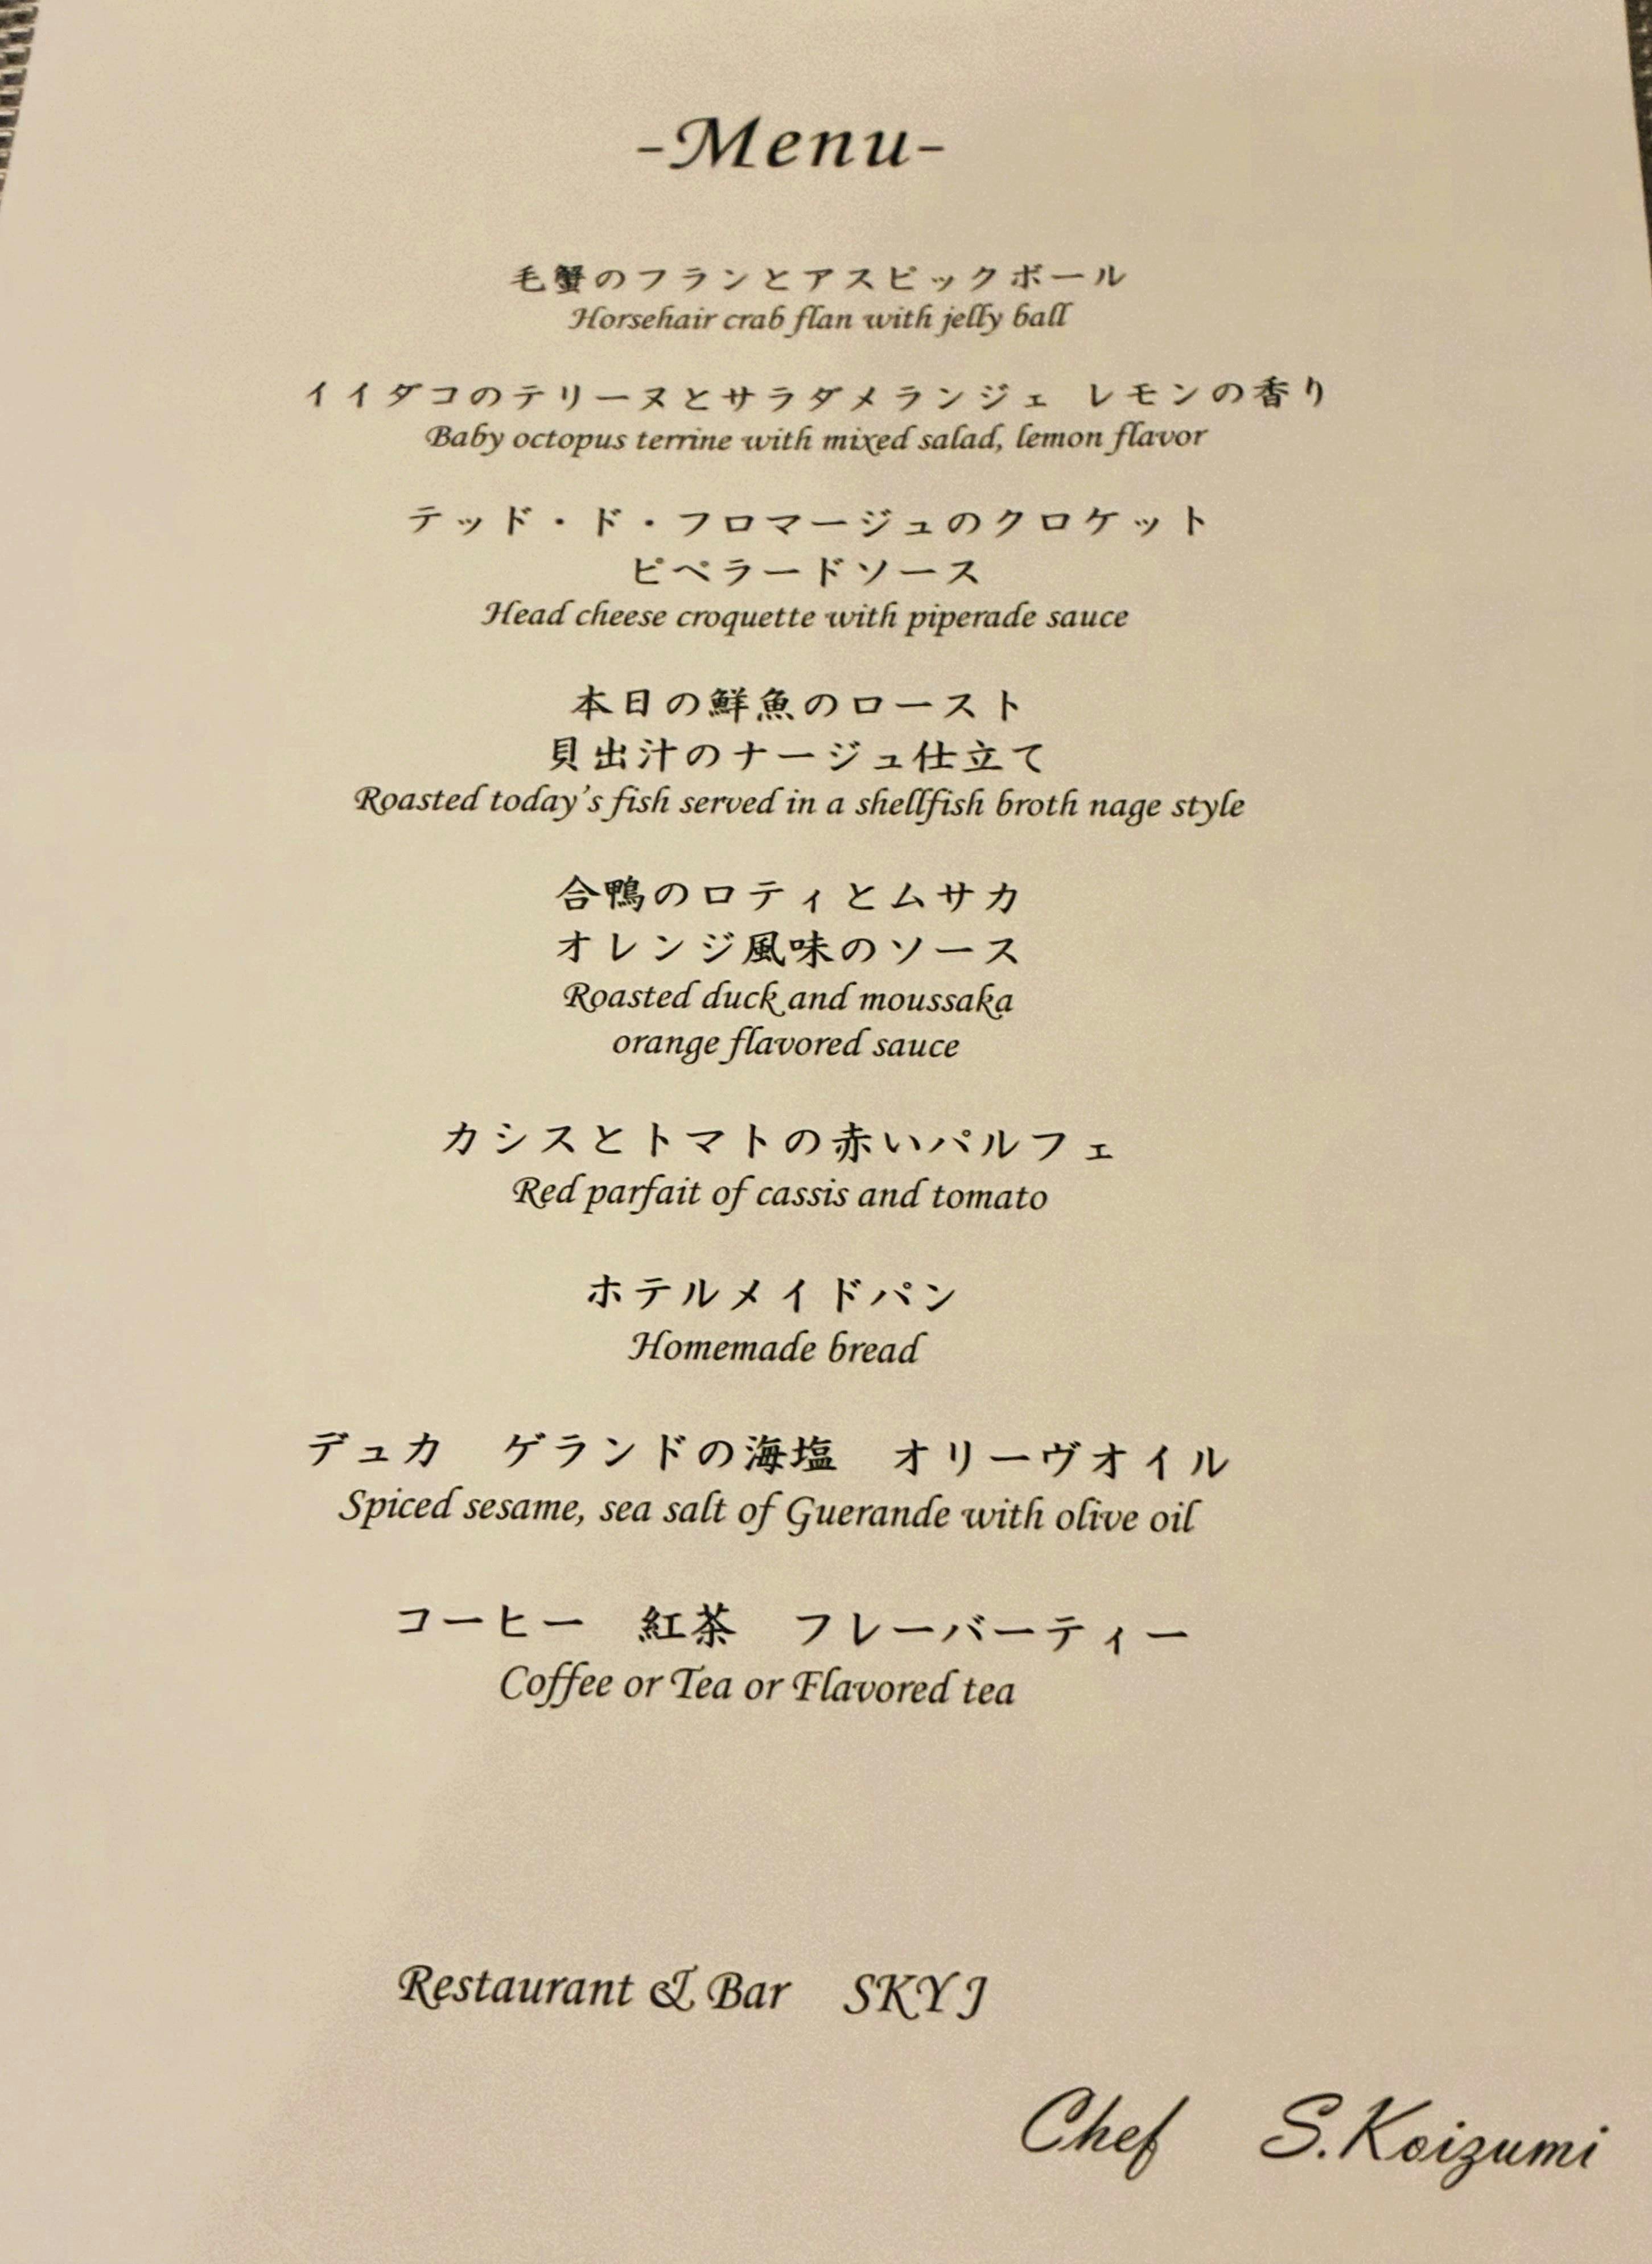 -Menu-
毛蟹のフランとアスピックボール
Horsehair crab flan with jelly ball
イイダコのテリーヌとサラダメランジェ レモンの香り
Baby octopus terrine with mixed salad, lemon flavor
テッド・ド・フロマージュのクロケット
ピペラードソース
Head cheese croquette with piperade sauce
本日の鮮魚のロースト
貝出汁のナージュ仕立て
Roasted today's fish served in a shellfish broth nage style
合鴨のロティとムサカ
オレンジ風味のソース
Roasted duck and moussaka
orange flavored sauce
カシスとトマトの赤いパルフェ
Red parfait of cassis and tomato
ホテルメイドパン
Homemade bread
デュカ　ゲランドの海塩　オリーヴオイル
Spiced sesame, sea salt of Guerande with olive oil
コーヒー　紅茶　フレーバーティー
Coffee or Tea or Flavored tea
Restaurant & Bar　SKY J
Chef　S.Koizumi